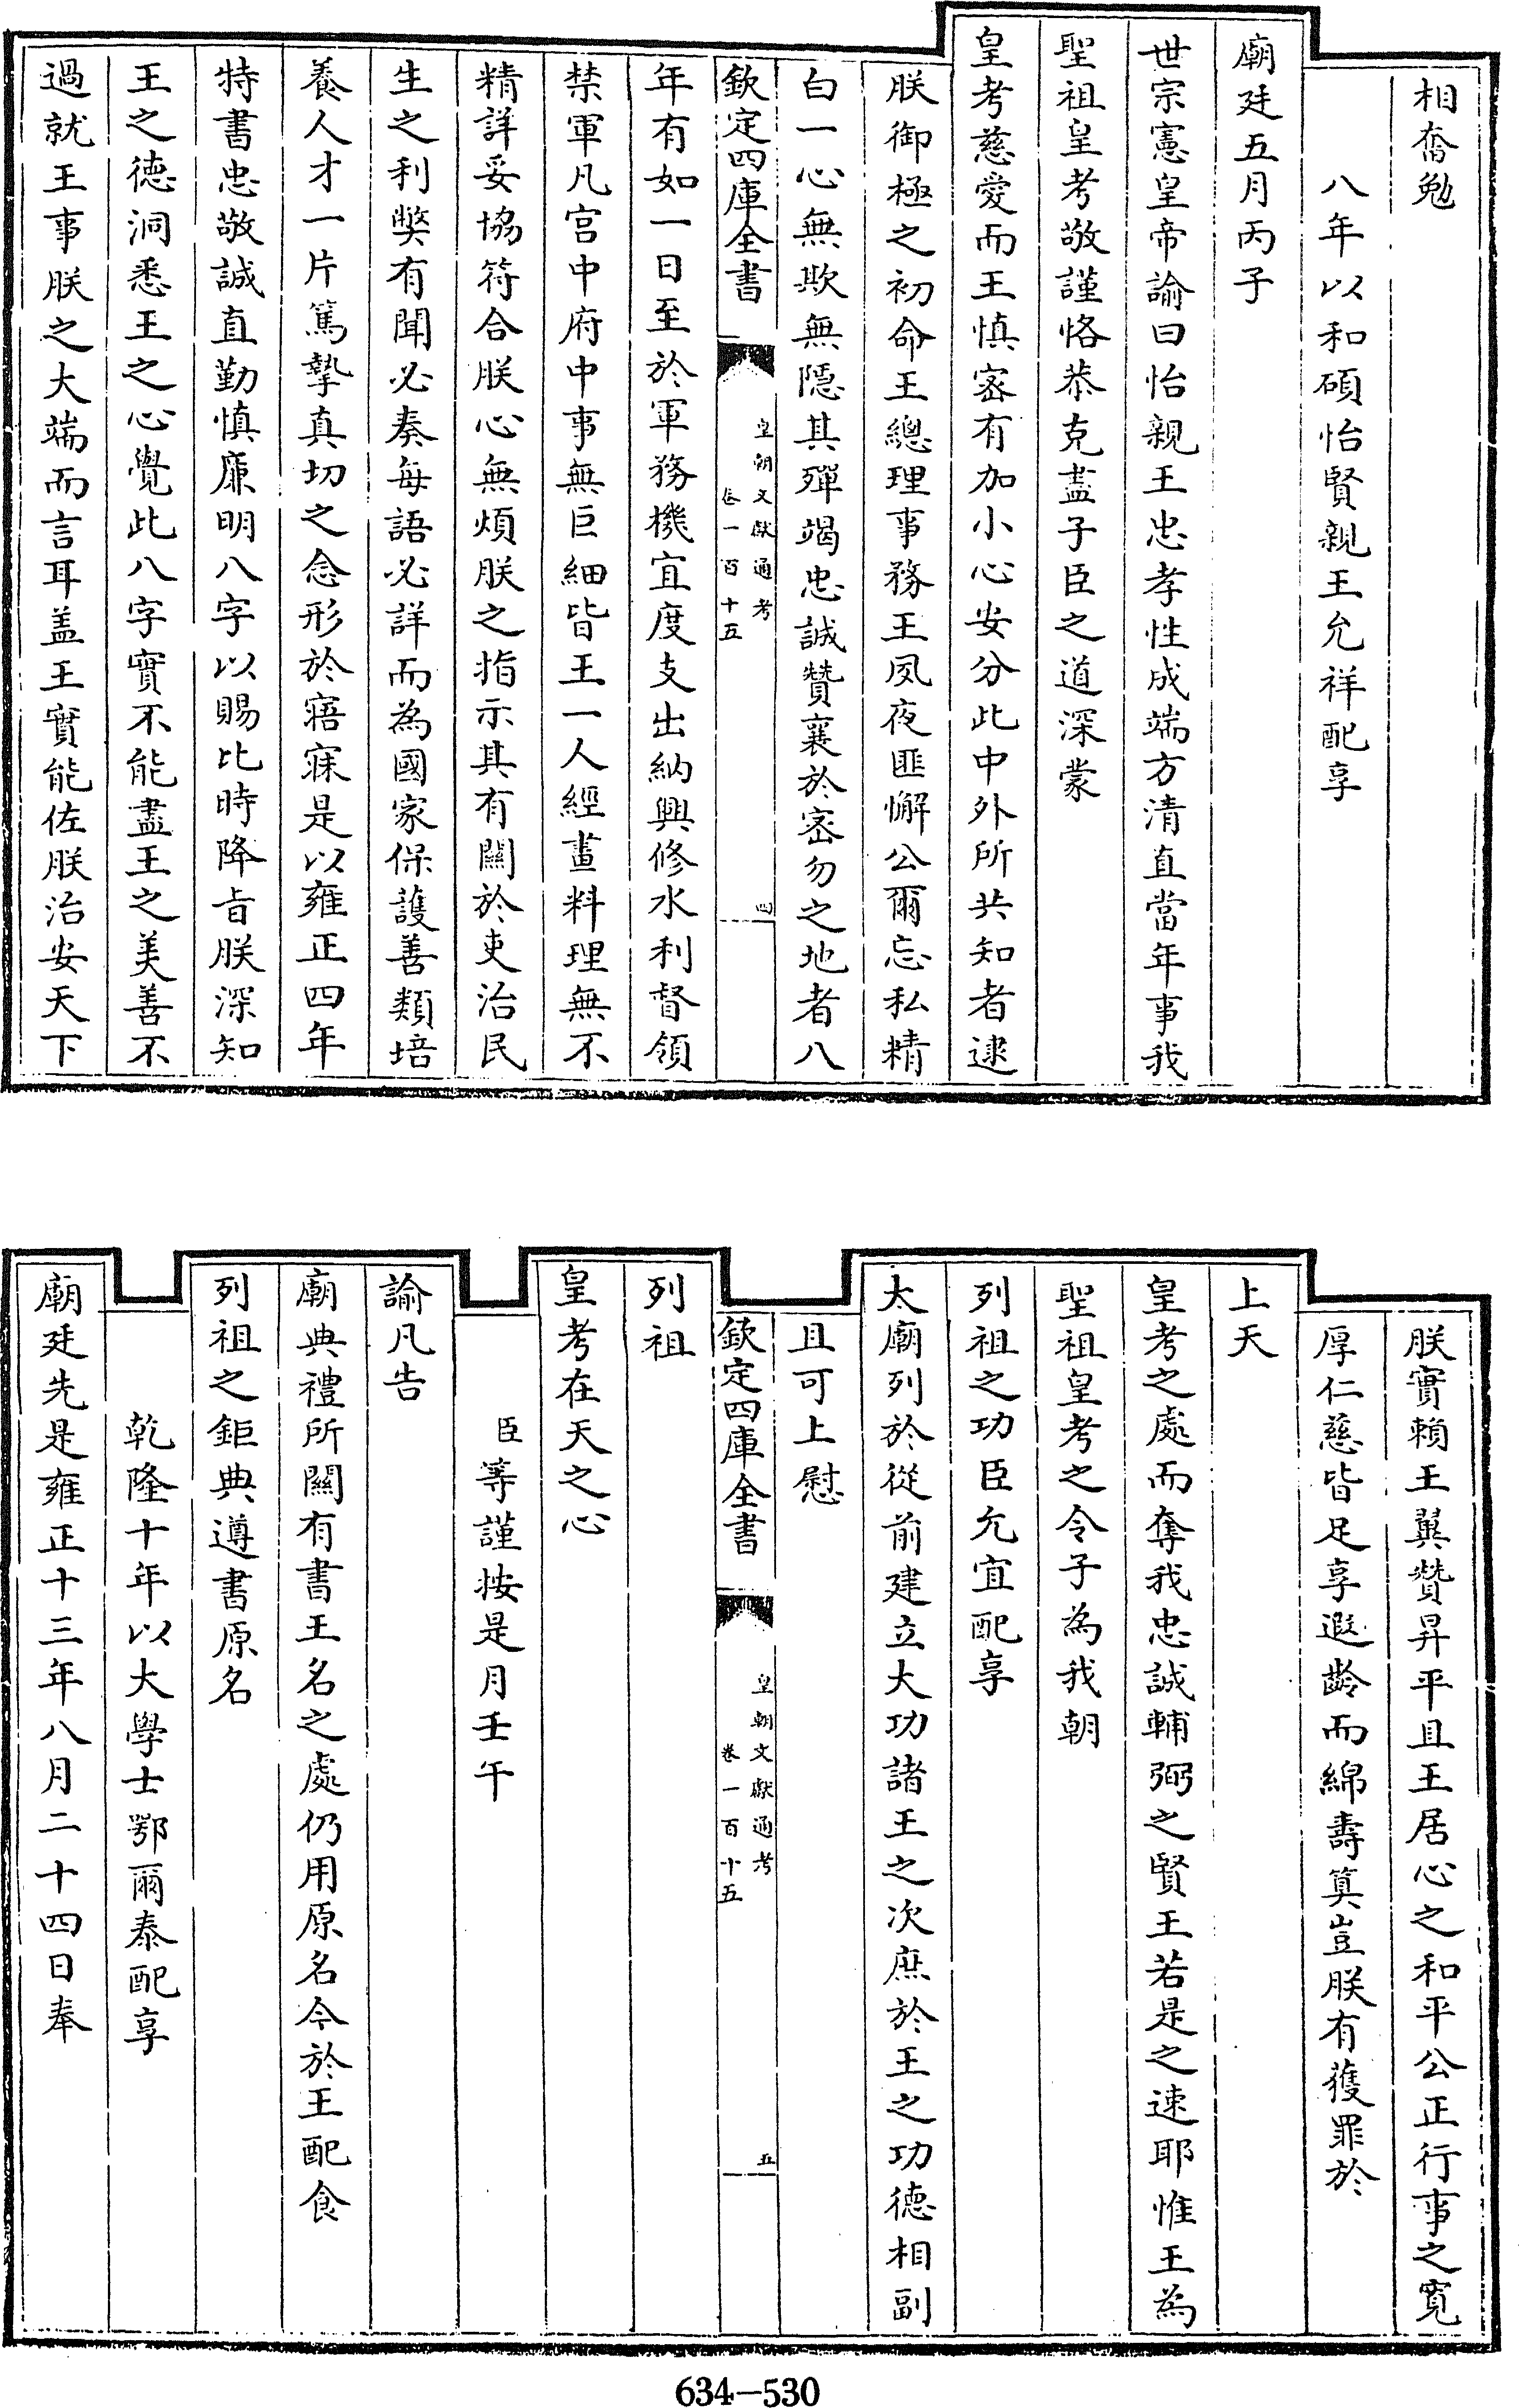 相奮勉
八年以和碩怡賢親王允祥配享
廟廷五月丙子
世宗憲皇帝諭曰怡親王忠孝性成端方清直當年事我
聖祖皇考敬謹恪恭克盡子臣之道深蒙
皇考慈愛而王慎密有加小心安分此中外所共知者逮
朕御極之初命王總理事務王夙夜匪懈公爾忘私精
白一心無欺無隱其殫竭忠誠贊襄於密勿之地者八
欽定四庫全書
皇朝文獻通考
卷一百十五
四
年有如一日至於軍務機宜度支出納興修水利督領
禁軍凡宫中府中事無巨細皆王一人經畫料理無不
精詳妥協符合朕心無煩朕之指示其有關於吏治民
生之利弊有聞必奏每語必詳而為國家保護善類培
養人才一片篤摯真切之念形於寤寐是以雍正四年
特書忠敬誠直勤慎廉明八字以賜比時降旨朕深知
王之德洞悉王之心覺此八字實不能盡王之美善不
過就王事朕之大端而言耳盖王實能佐朕治安天下
朕實賴王翼贊昇平且王居心之和平公正行事之寛
厚仁慈皆足享遐齡而綿壽算豈朕有獲罪於
上天
皇考之處而奪我忠誠輔弼之賢王若是之速耶惟王為
聖祖皇考之令子為我朝
列祖之功臣允宜配享
太廟列於從前建立大功諸王之次庶於王之功德相副
且可上慰
欽定四庫全書
皇朝文獻通考
卷一百十五
五
列祖
皇考在天之心
臣等謹按是月壬午
諭凡告
廟典禮所關有書王名之處仍用原名今於王配食
列祖之鉅典遵書原名
乾隆十年以大學士鄂爾泰配享
廟廷先是雍正十三年八月二十四日奉
634-530